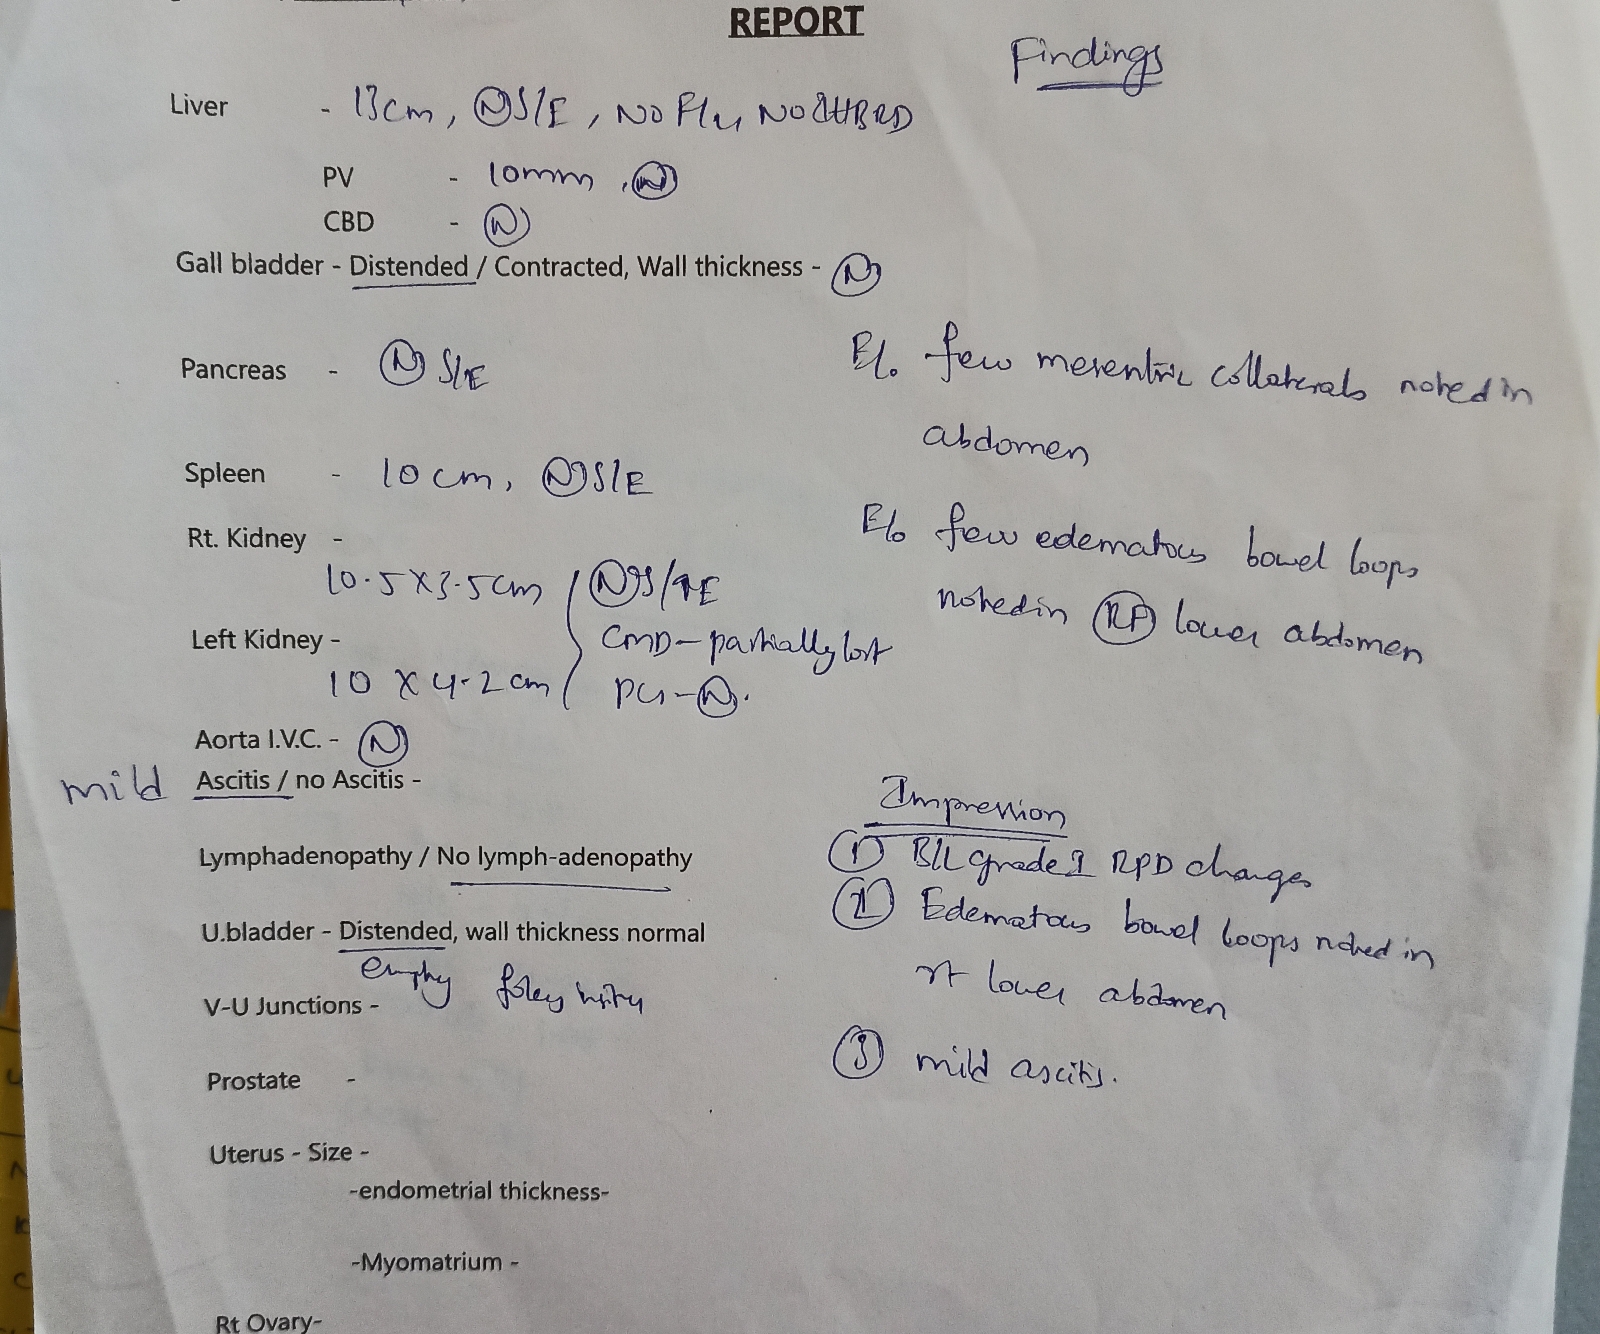 REPORT
Findings
Liver - 13cm, (N) S/E, NO FLL, NO IHBRD
PV - 10mm, (N)
CBD - (N)
Gall bladder - Distended / Contracted, Wall thickness - (N)
Pancreas - (N) S/E
E/o few mesentric collaterals noted in
abdomen
Spleen - 10cm, (N) S/E
E/o few edematous bowel loops
noted in lower abdomen
Rt. Kidney -
10.5X3.5cm (N) S/↑E
Left Kidney - CMD - partially lost
10 X 4.2cm PCS - (N).
Aorta I.V.C. - (N)
mild Ascitis / no Ascitis -
Lymphadenopathy / No lymph-adenopathy
U.bladder - Distended, wall thickness normal
empty foley insitu
V-U Junctions -
Prostate -
Uterus - Size -
-endometrial thickness-
-Myomatrium -
Rt Ovary-
Impression
(1) B/L grade I RPD changes
(2) Edematous bowel loops noted in
rt lower abdomen
(3) mild ascitis.